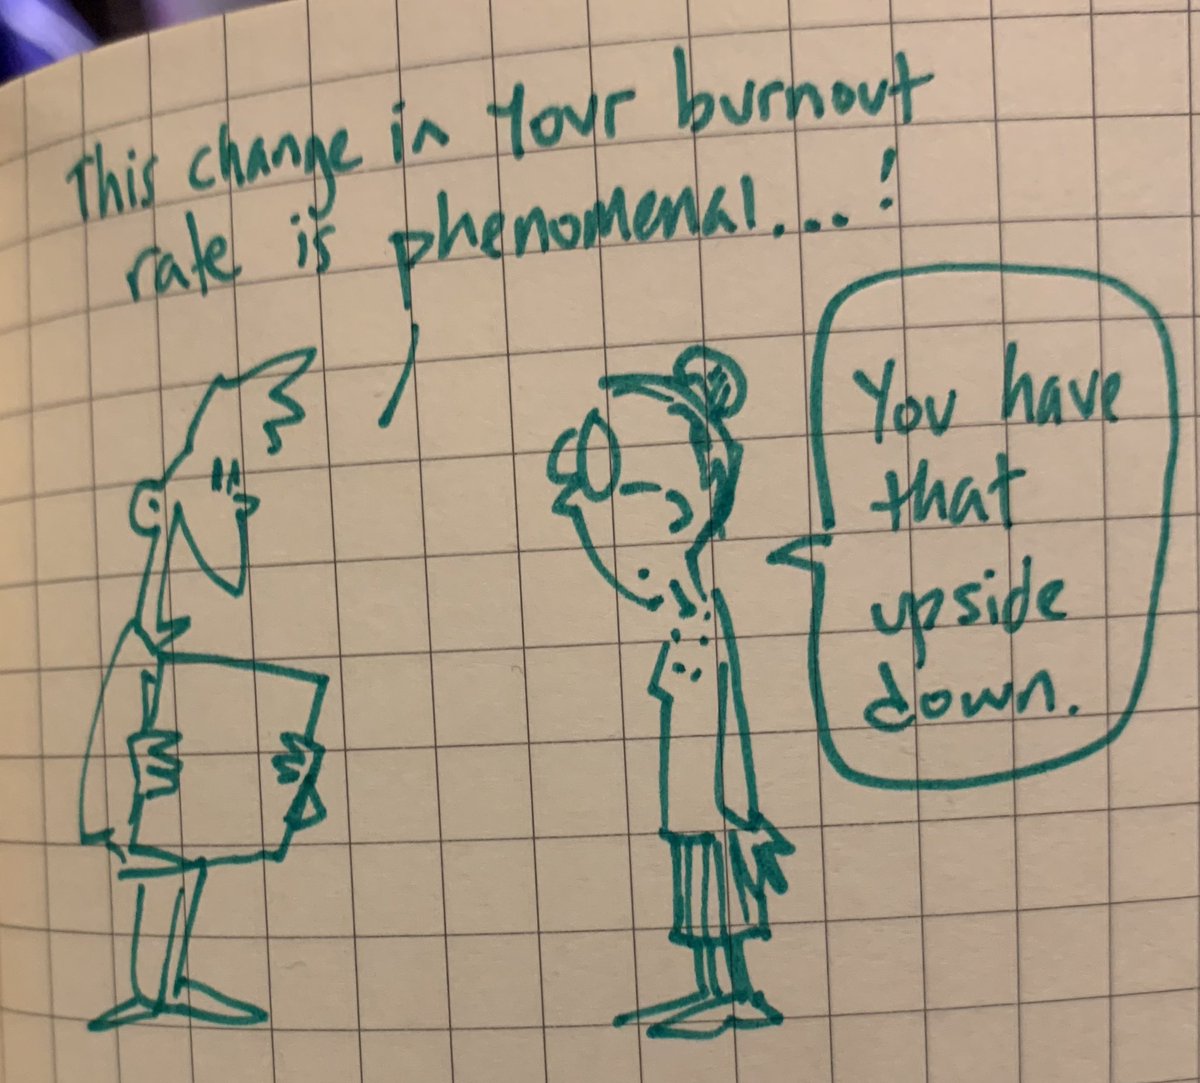 This change in Your burnout
rate is phenomenal...!
You have
that
upside
down.